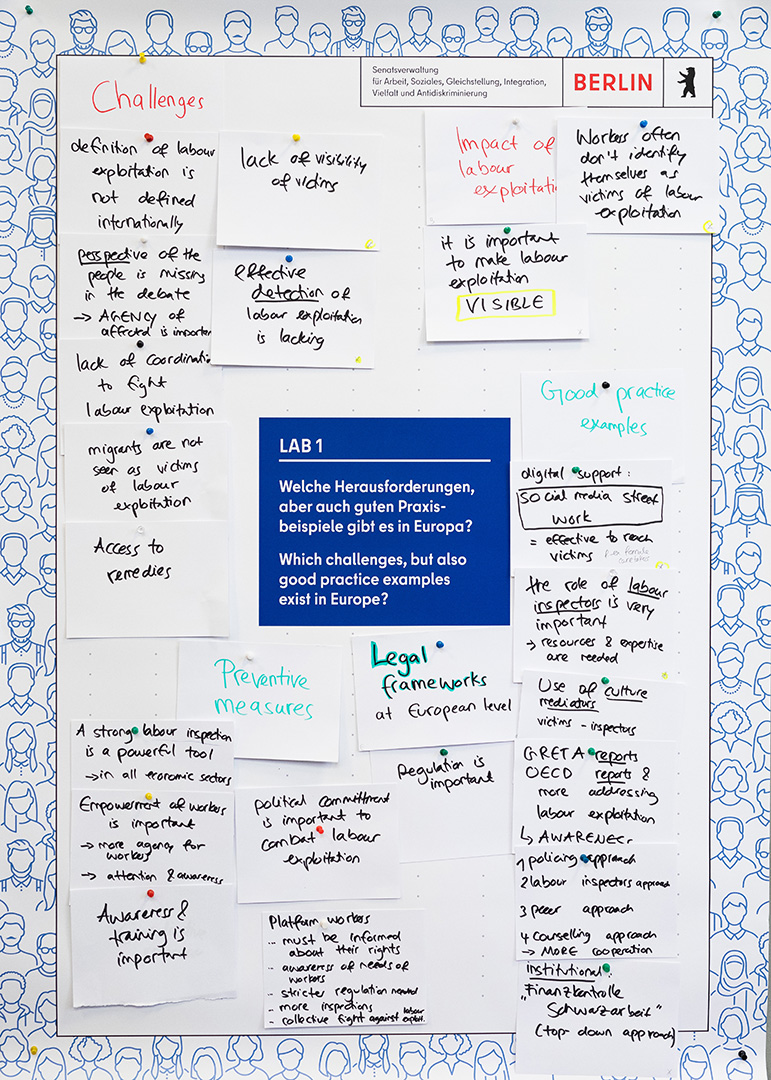 Senatsverwaltung
für Arbeit, Soziales, Gleichstellung, Integration,
Vielfalt und Antidiskriminierung
BERLIN
Challenges
definition of labour
exploitation is
not defined
internationally
perspective of the
people is missing
in the debate
→ AGENCY of
affected is important
lack of coordination
to fight
labour exploitation
migrants are not
seen as victims
of labour
exploitation
Access to
remedies
lack of visibility
of victims
effective
detection of
labour exploitation
is lacking
Impact of
labour
exploitati
Workers often
don't identify
themselves as
victims of labour
exploitation
it is important
to make labour
exploitation
VISIBLE
LAB 1
Welche Herausforderungen,
aber auch guten Praxis-
beispiele gibt es in Europa?
Which challenges, but also
good practice examples
exist in Europe?
Good practice
examples
digital support:
social media street
work
= effective to reach
victims
the role of labour
inspectors is very
important
→ resources & expertise
are needed
Use of culture
mediators
victims - inspectors
GRETA reports
OECD reports &
more addressing
labour exploitation
↳ AWARENESS
1 policing approach
2 labour inspectors approach
3 peer approach
4 counselling approach
→ MORE cooperation
institutional:
"Finanzkontrolle
Schwarzarbeit"
(top-down approach)
Preventive
measures
A strong labour inspection
is a powerful tool
→ in all economic sectors
Empowerment of workers
is important
→ more agency for
workers
→ attention & awareness
Awareness &
training is
important
political committment
is important to
combat labour
exploitation
Platform workers
... must be informed
about their rights
- awareness of needs of
workers
- stricter regulation needed
- more inspections
- collective fight against labour exploit.
Legal
frameworks
at European level
Regulation is
important